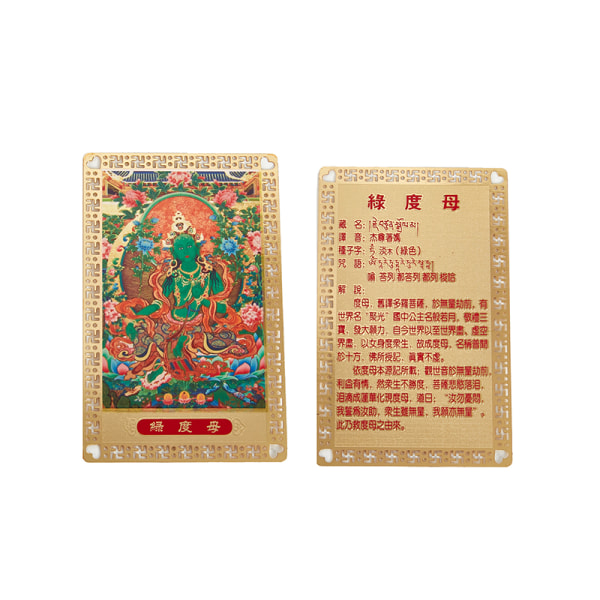 綠度母
綠度母
藏名:
譯音:杰尊著瑪
種子字: 淡木(綠色)
咒語:
嗡 答列 都答列 都列 梭哈
解說:
度母,舊譯多羅菩薩,於無量劫前,有
世界名“聚光”國中公主名般若月。敬禮三
寶,發大願力,自今世界以至世界盡、虛空
界盡,以女身度衆生,故成度母,名稱普聞
於十方,佛所授記,眞實不虛。
依度母本源記所載:觀世音於無量劫前,
利益有情,然衆生不勝度,菩薩悲愍落泪,
泪滴成蓮華化現度母,道曰:“汝勿憂悶,
我誓爲汝助,衆生雖無量,我願亦無量”。
此乃救度母之由來。